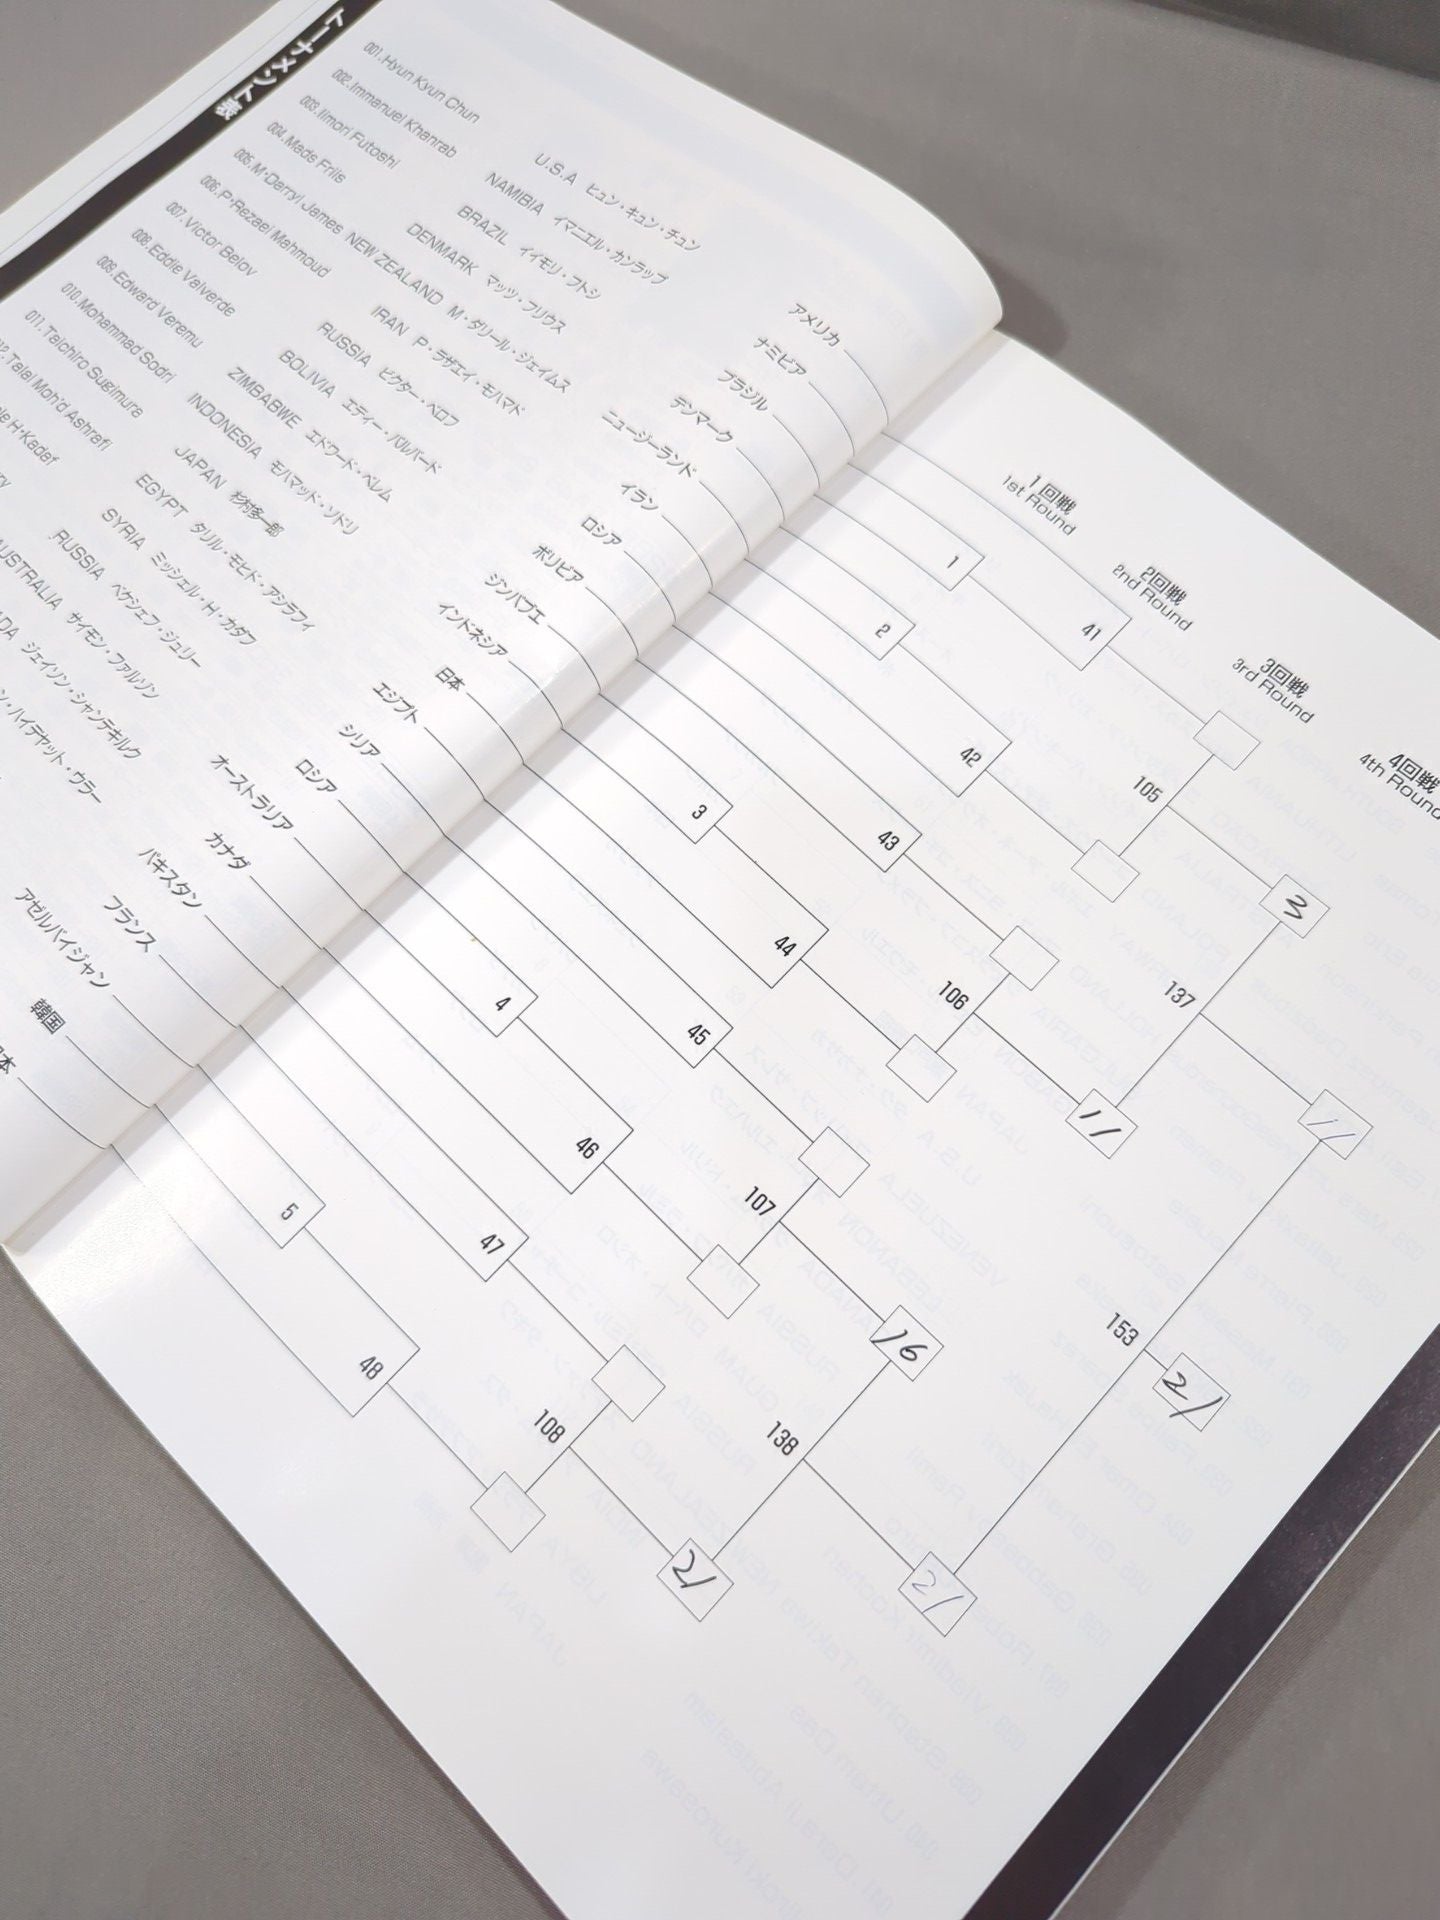 トーナメント表
001.Hyun Kyun Chun U.S.A ヒュン・キュン・チュン アメリカ
002.Immanuel Khanrab NAMIBIA イマニエル・カンラップ ナミビア
003.Iimori Futoshi BRAZIL イイモリ・フトシ ブラジル
004.Mads Friis DENMARK マッツ・フリウス デンマーク
005.M・Darryl James NEW ZEALAND M・ダリール・ジェイムス ニュージーランド
006.P・Rezaei Mahmoud IRAN P・ラザエイ・モハマド イラン
007.Victor Belov RUSSIA ビクター・ベロフ ロシア
008.Eddie Valverde BOLIVIA エディー・バルバード ボリビア
009.Edward Veremu ZIMBABWE エドワード・ベレム ジンバブエ
010.Mohammad Sodri INDONESIA モハマッド・ソドリ インドネシア
011.Taichiro Sugimura JAPAN 杉村多一郎 日本
Talal Moh'd Ashrafi EGYPT タリル・モヒド・アシラフィ エジプト
H・Kadaf SYRIA ミッシェル・H・カダフ シリア
RUSSIA ベケシェフ・ジュリー ロシア
AUSTRALIA サイモン・ファルソン オーストラリア
ジェイソン・シャンテキルク カナダ
ハイデヤット・ウラー パキスタン
フランス
アゼルバイジャン
韓国
1回戦
1st Round
2回戦
2nd Round
3回戦
3rd Round
4回戦
4th Round
1
41
2
42
105
3
43
3
44
106
137
11
11
4
45
46
107
16
153
21
5
47
48
108
138
21
21